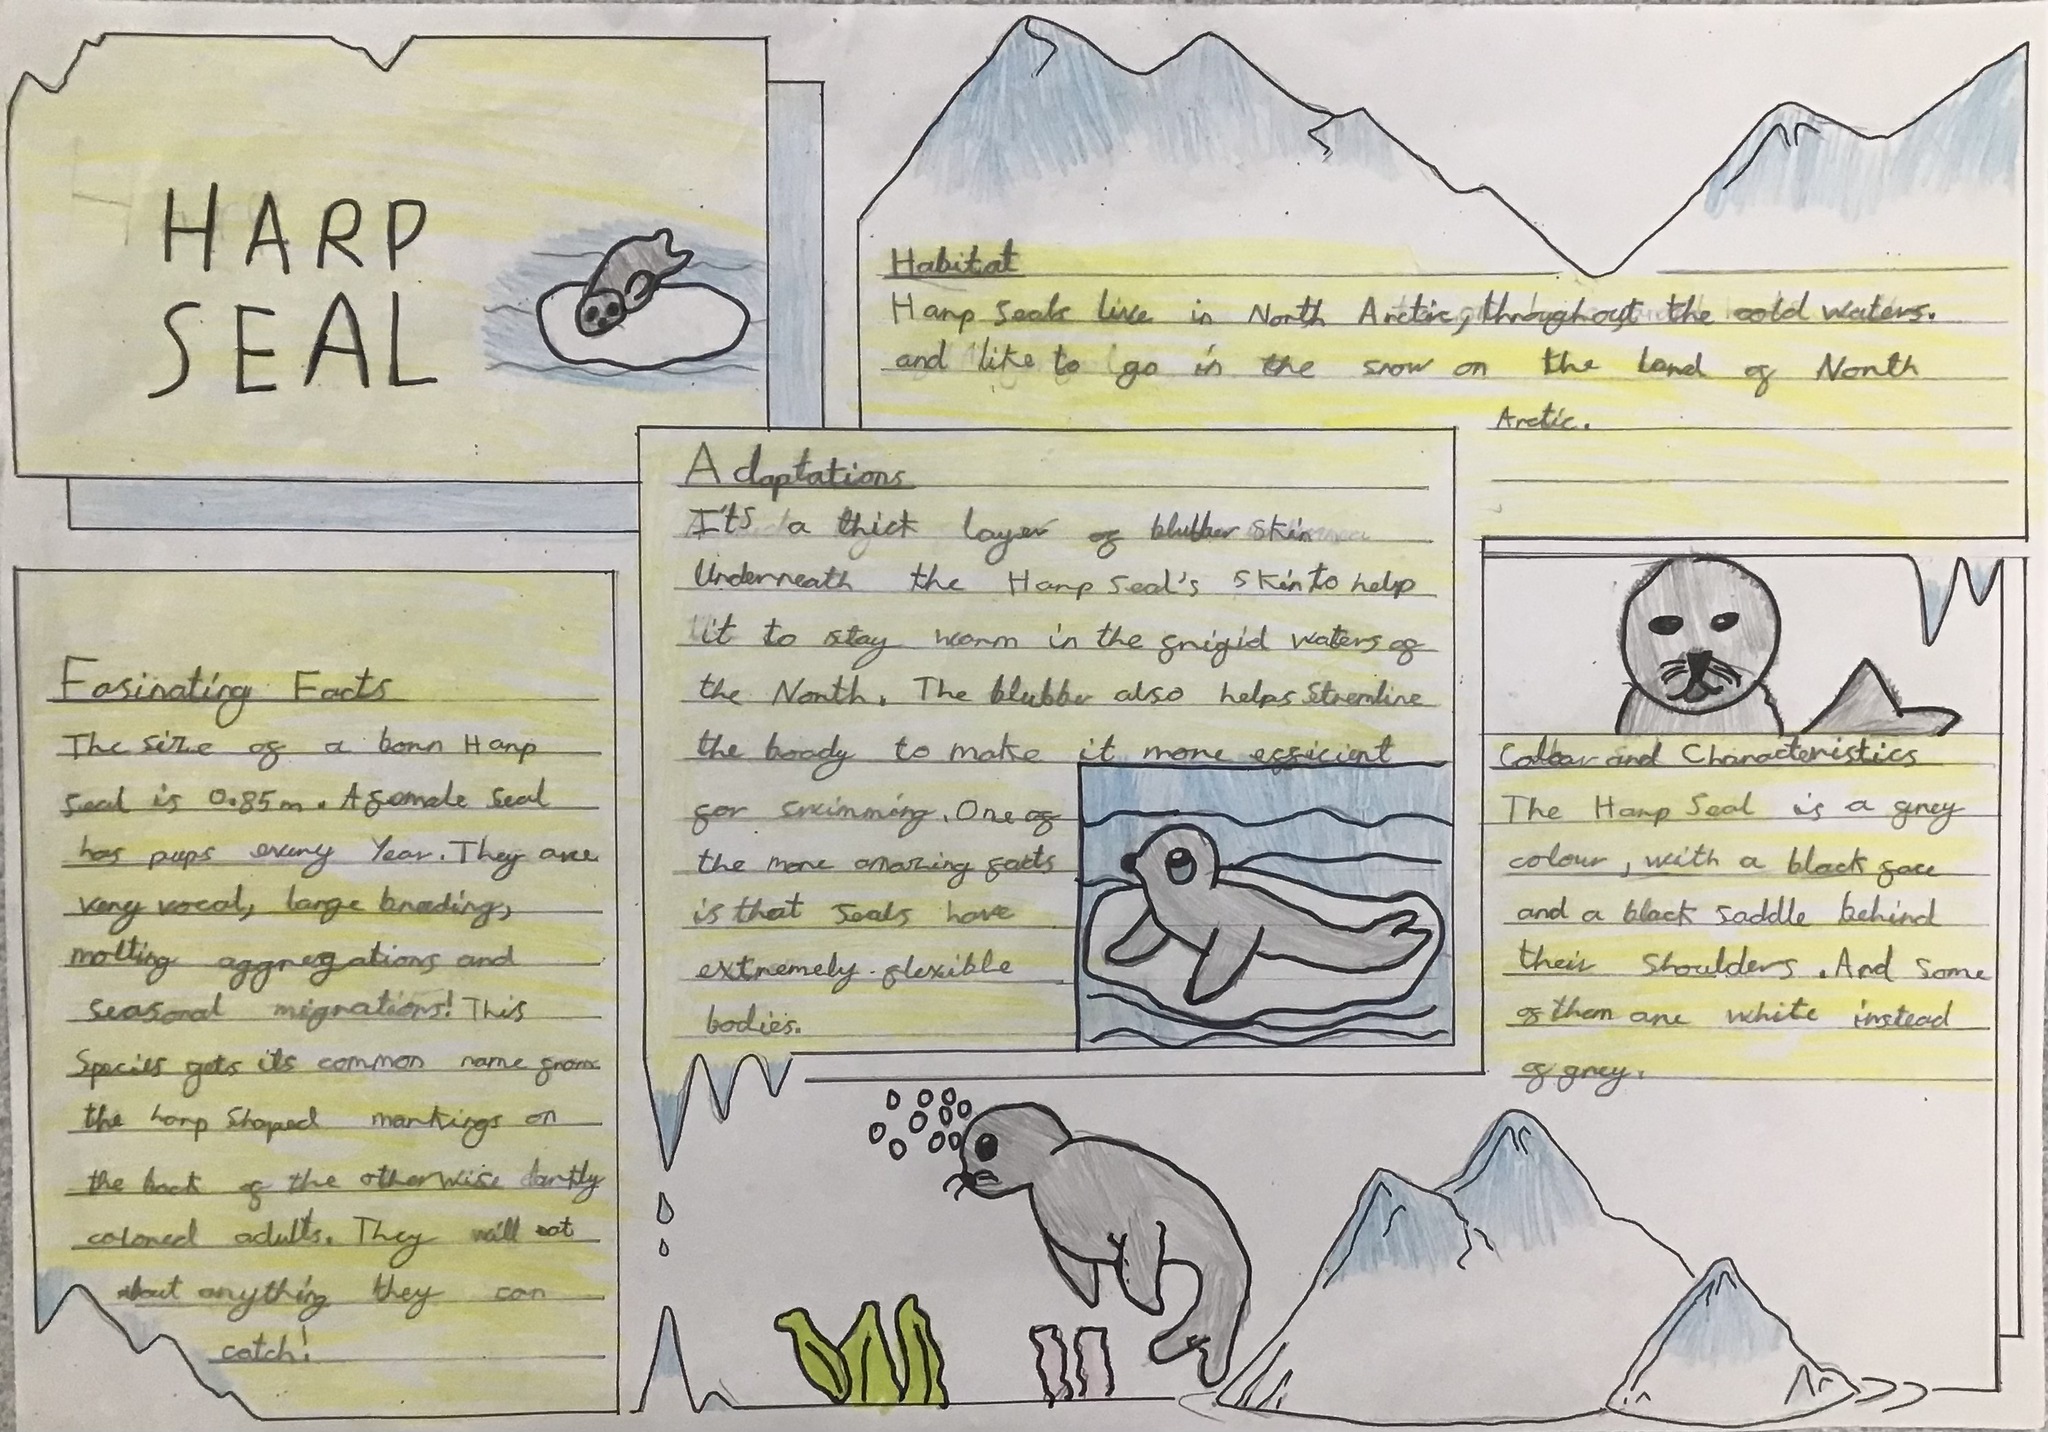 HARP
SEAL
Habitat
Harp seals live in North Arctic, throughout the cold waters.
and like to go in the snow on the land of North
Arctic.
Adaptations
It's a thick layer of blubber skin
Underneath the Harp Seal's skin to help
it to stay warm in the frigid waters of
the North. The blubber also helps Stremline
the boody to make it more efficient
for swimming. One of
the more amazing facts
is that seals have
extremely flexible
bodies.
Fasinating Facts
The size of a born Harp
Seal is 0.85m. A female Seal
has pups every Year. They are
very vocal, large breeding,
molting aggregations and
seasonal migrations! This
Species gets its common name from
the harp Shaped markings on
the back of the otherwise darkly
colored adults. They will eat
about anything they can
catch!
Colour and Characteristics
The Harp Seal is a grey
colour, with a black face
and a black saddle behind
their Shoulders. And some
of them are white instead
of grey.